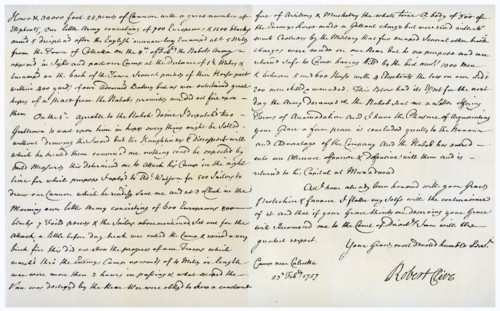 Horse & 30000 foot 25 pieces of Cannon with a great number of
Elephants, Our little Army consisting of 700 Europeans & 1200 blacks
arm'd & disciplin'd after the English manner lay Encamp'd
from the Town of Calcutta on the 4th of Feb'y the Nabob's Army
appear'd in sight and past our Camp at the distance of 1½ Miles &
encamp'd on the back of the Town several parties of their Horse past
within 400 yards of our Advanced Battery but as we entertain'd great
hopes of a Peace from the Nabob's promises we did not fire upon
them
On the 5th agreable to the Nabob's desire I dispatch'd two
Gentlemen to wait upon him in hopes every thing might be settled
without drawing the sword but the Haughtiness & disrespect with
which he treated them convinc'd me nothing could be expected by
mild Measures this determin'd me to attack his Camp in the night
time for which purpose I apply'd to Wattson for 500 Sailors to
draw our Cannon which he readily sent me and at 3 oClock in the
Morning our little Army consisting of 600 Europeans 800
blacks 7 field pieces & the Sailors abovemention'd set out for the
attack a little before day break we enter'd the Camp & receiv'd a very
brisk fire this did not stop the progress of our Troops which
march'd thro' the Enemy's Camp upwards of 4 Miles in length
we were more than 2 hours in passing & what escap'd the
Van was destroyed by the Rear We were oblig'd to keep a constant
fire of Artillery & Musketry the whole time A body of 300 of
the Enemy's horse made a Gallant charge but were receiv'd with so
much Coolness by the Musketry that few escap'd Several other brisk
charges were made on our Rear but to no purpose and we
return'd safe to Camp having kill'd by the best accounts 1300 Men
& between 5 and 600 Horse with 4 Elephants the loss on our Side
200 men kill'd & wounded. This Blow had its Effect for the next
day the Army decamp'd & the Nabob sent me a letter offering
Terms of Accomodation And I have the Pleasure of Acquainting
your Grace a firm peace is concluded greatly to the Honour
and Advantage of the Company And the Nabob has enter'd
into an Alliance offensive & Defensive with them and is
return'd to his Capital at Muxadavad
As I have already been honour'd with your Grace's
Protection & favour I flatter my self with the continuance
of it and that if your Grace thinks me deserving your Grace
will recommend me to the Court of I am with the
greatest respect
Your Grace's most devoted humble Serv't
Camp near Calcutta
23d Feb'y 1757
Robert Clive